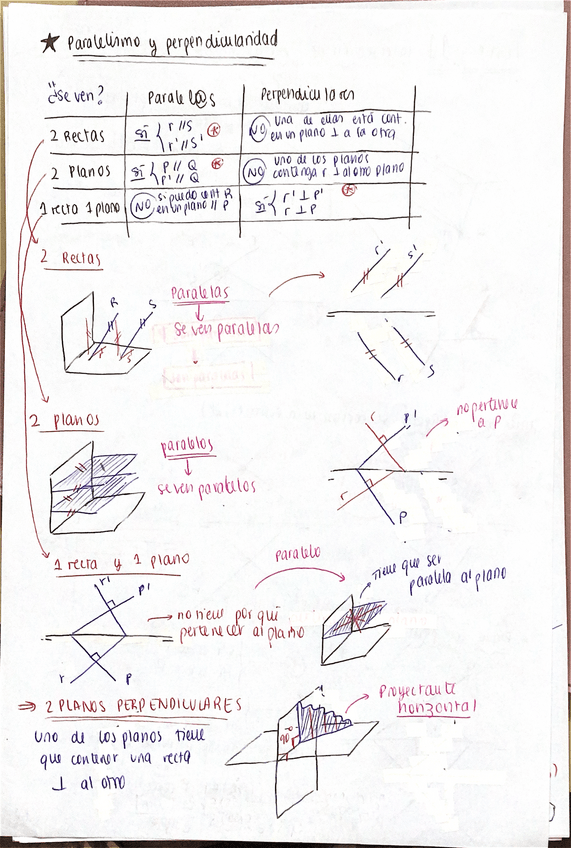 ★ Paralelismo y perpendicularidad
¿Se ven? Paralel@s Perpendiculares
2 Rectas SÍ { r // s r' // s' * NO una de ellas está cont. en un plano ⊥ a la otra
2 Planos SÍ { P // Q P' // Q' * NO uno de los planos contenga r ⊥ al otro plano
1 recta 1 plano NO si puedo cont R en un plano // P SÍ { r' ⊥ P' r ⊥ P *
2 Rectas
r' s'
R S
Paralelas
Se ven paralelas
r s
r s
2 planos
paralelos
se ven paralelos
r' P'
no pertenece a P
r
P
1 recta y 1 plano
r' P'
no tiene por qué
pertenecer al plano
r P
paralelo
tiene que ser
paralela al plano
⇒ 2 PLANOS PERPENDICULARES
uno de los planos tiene
que contener una recta
⊥ al otro
90°
Proyectante
horizontal